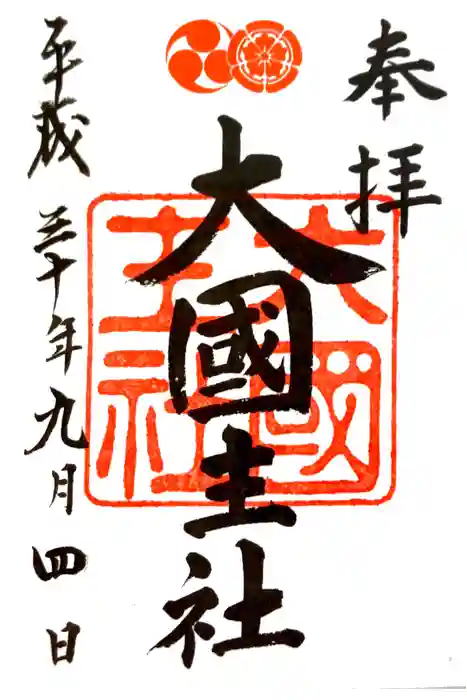 奉拝
大國主社
大國主社
平成三十年九月四日